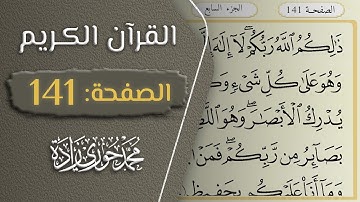 القرآن الكريم
الصفحة: 141
محمد حوري زادة
الصفحة 141
الجزء السابع
ذَٰلِكُمُ ٱللَّهُ رَبُّكُمْ ۖ لَآ إِلَٰهَ
وَهُوَ عَلَىٰ كُلِّ شَىْءٍ
يُدْرِكُ ٱلْأَبْصَٰرَ ۖ وَهُوَ
بَصَآئِرُ مِن رَّبِّكُمْ ۖ فَمَنْ
وَمَآ أَنَا۠ عَلَيْكُم بِحَفِيظٍ